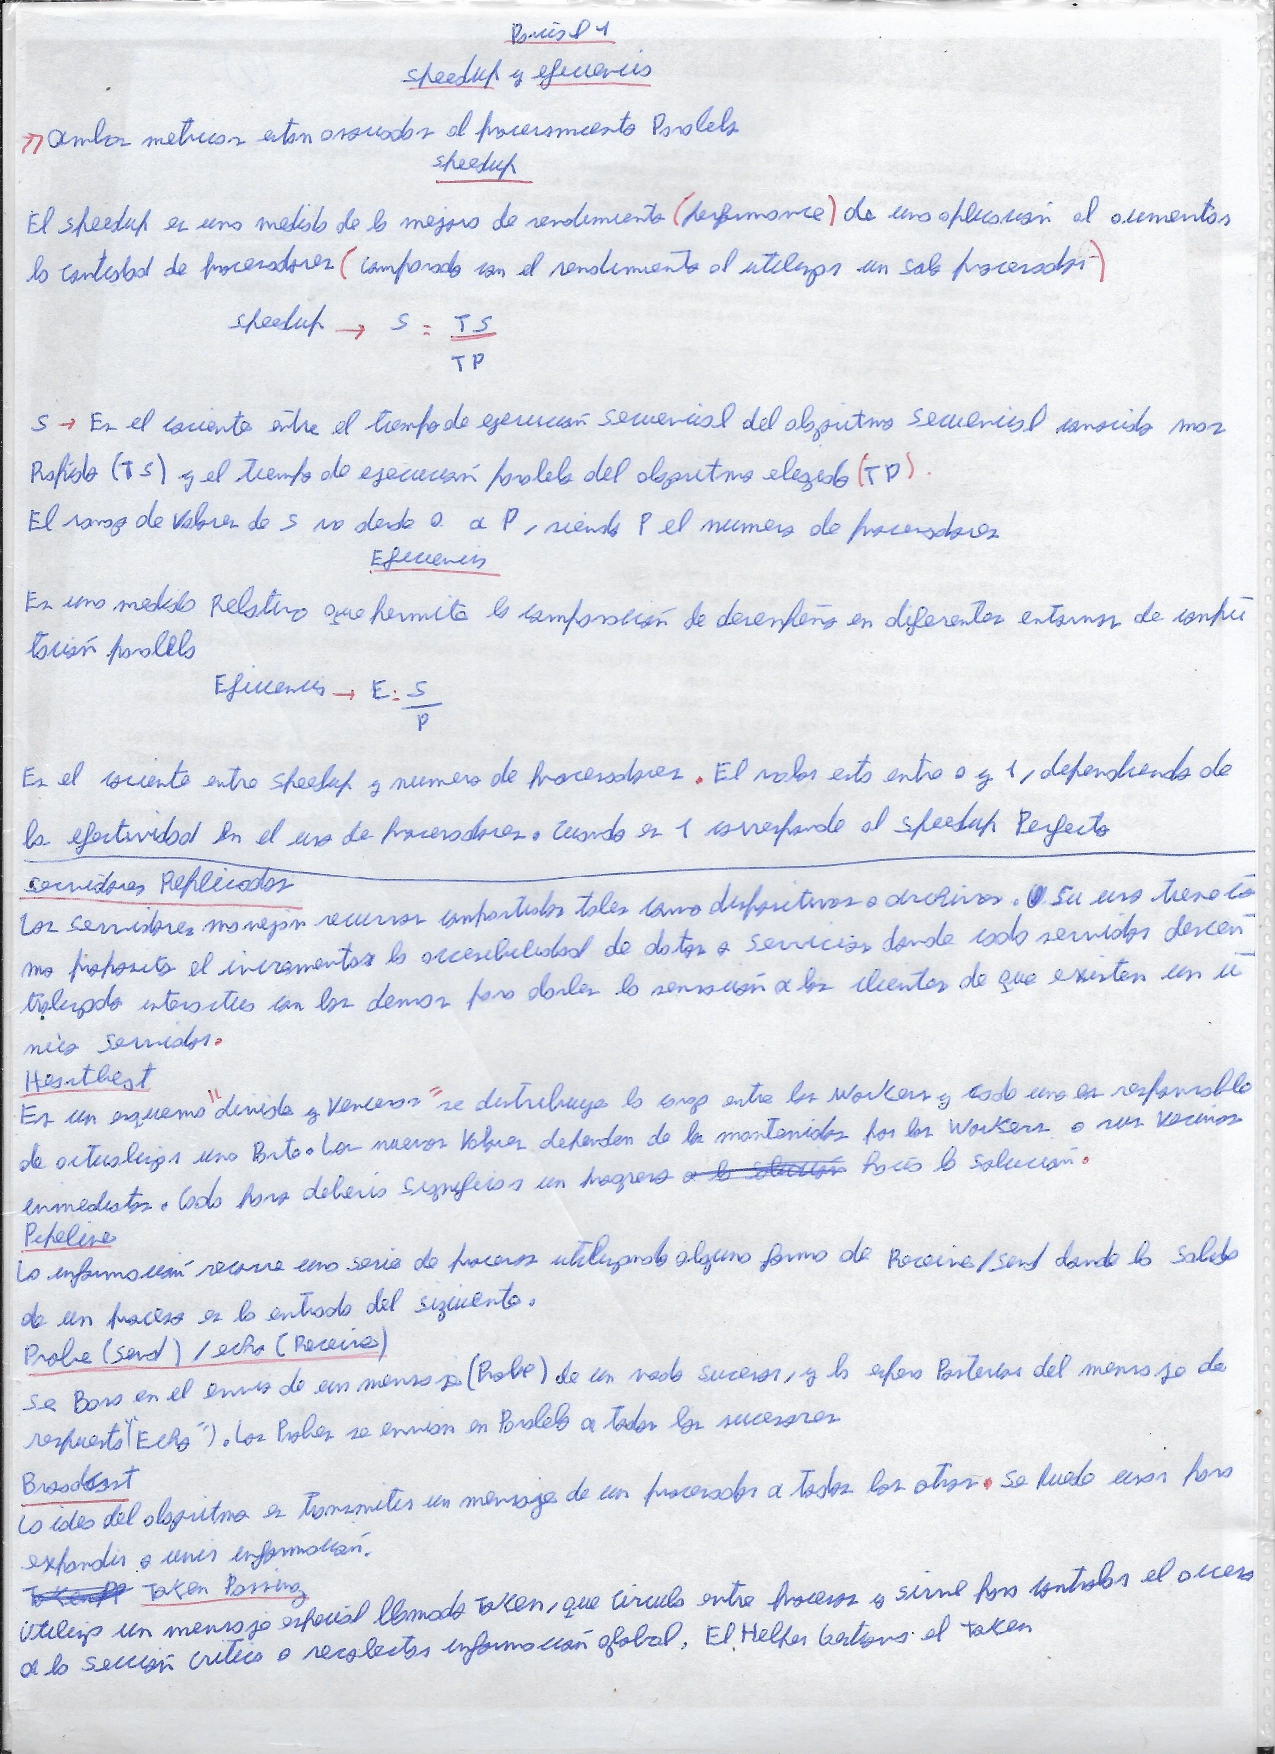 Parcial 1
Speedup y eficiencia
Ambas metricas estan asociadas al procesamiento Paralelo
Speedup
El speedup es una medida de la mejora de rendimiento (performance) de una aplicación al aumentar
la cantidad de procesadores (comparado con el rendimiento al utilizar un solo procesador)
speedup → S = TS
TP
S → Es el cociente entre el tiempo de ejecución secuencial del algoritmo secuencial conocido mas
Rapido (TS) y el tiempo de ejecución paralelo del algoritmo elegido (TP).
El rango de valores de S va desde 0 a P, siendo P el numero de procesadores
Eficiencia
Es una medida Relativa que permite la comparación de desempeño en diferentes entornos de compu
tación paralela
Eficiencia → E = S
P
Es el cociente entre speedup y numero de procesadores. El valor esta entre 0 y 1, dependiendo de
la efectividad en el uso de procesadores. Cuando es 1 corresponde al speedup Perfecto
Servidores Replicados
Los servidores manejan recursos compartidos tales como dispositivos o archivos. Su uso tiene co
mo proposito el incrementar la accesibilidad de datos o servicios donde cada servidor descen
tralizado interactua con los demas para darles la sensación a los clientes de que existen un ú
nico servidor.
Heartbeat
Es un esquema "divide y venceras" se distribuye la carga entre los workers y cada uno es responsable
de actualizar una Parte. Los nuevos valores dependen de los mantenidos por los workers o sus vecinos
inmediatos. Cada paso deberia significar un progreso a la solución hacia la solución.
Pipeline
La información recorre una serie de procesos utilizando alguna forma de Receive/send donde la salida
de un proceso es la entrada del siguiente.
Probe (send) / echo (Receive)
Se Basa en el envio de un mensaje (Probe) de un nodo sucesor, y la espera Posterior del mensaje de
respuesta ("Echo"). Los Probes se envian en Paralelo a todos los sucesores
Broadcast
La idea del algoritmo es transmitir un mensaje de un procesador a todos los otros. Se puede usar para
expandir o unir información.
Token Passing
Utiliza un mensaje especial llamado token, que circula entre procesos y sirve para controlar el acceso
a la sección critica o recolectar información global. El Helper Gestiona el token